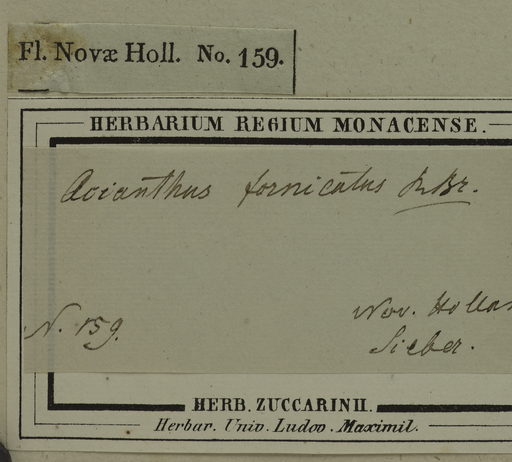 Fl. Novæ Holl. No. 159.
HERBARIUM REGIUM MONACENSE.
Acianthus fornicatus R.Br.
Nov. Hollan
N. 159.
Sieber.
HERB. ZUCCARINII.
Herbar. Univ. Ludov. Maximil.